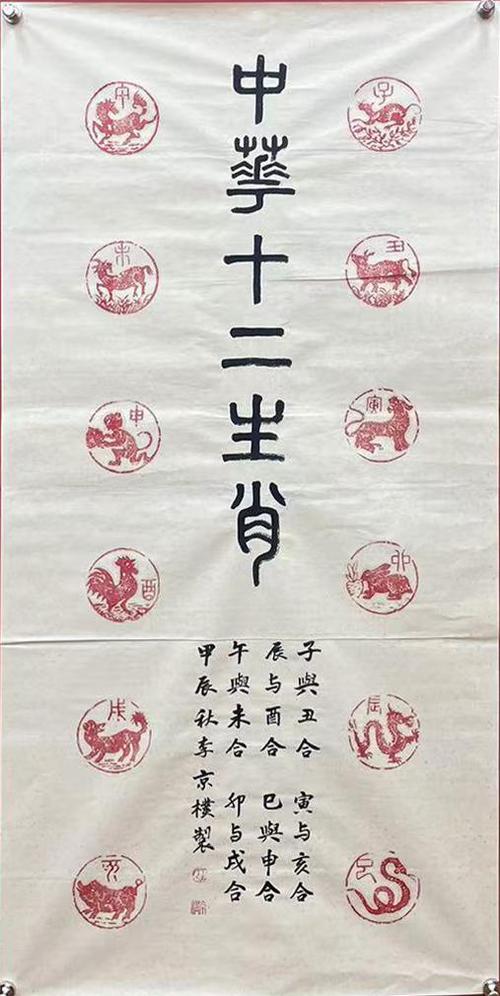 中華十二生肖
子
丑
寅
卯
辰
巳
午
未
申
酉
戌
亥
子與丑合 寅与亥合
辰与酉合 巳與申合
午與未合 卯与戌合
甲辰秋李京樸製